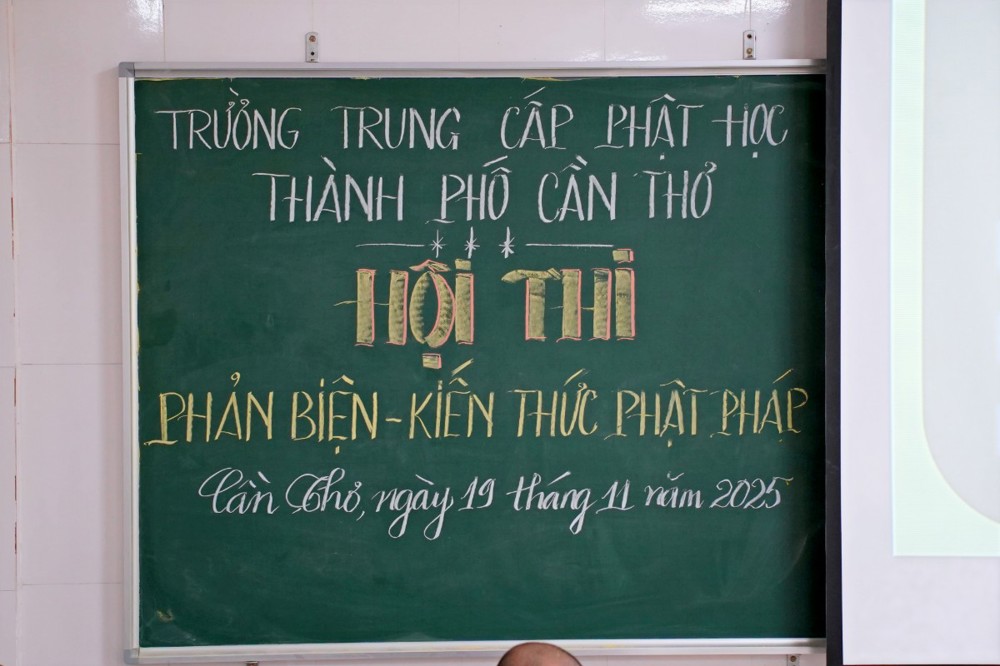 TRƯỜNG TRUNG CẤP PHẬT HỌC
THÀNH PHỐ CẦN THƠ
HỘI THI
PHẢN BIỆN - KIẾN THỨC PHẬT PHÁP
Cần Thơ, ngày 19 tháng 11 năm 2025